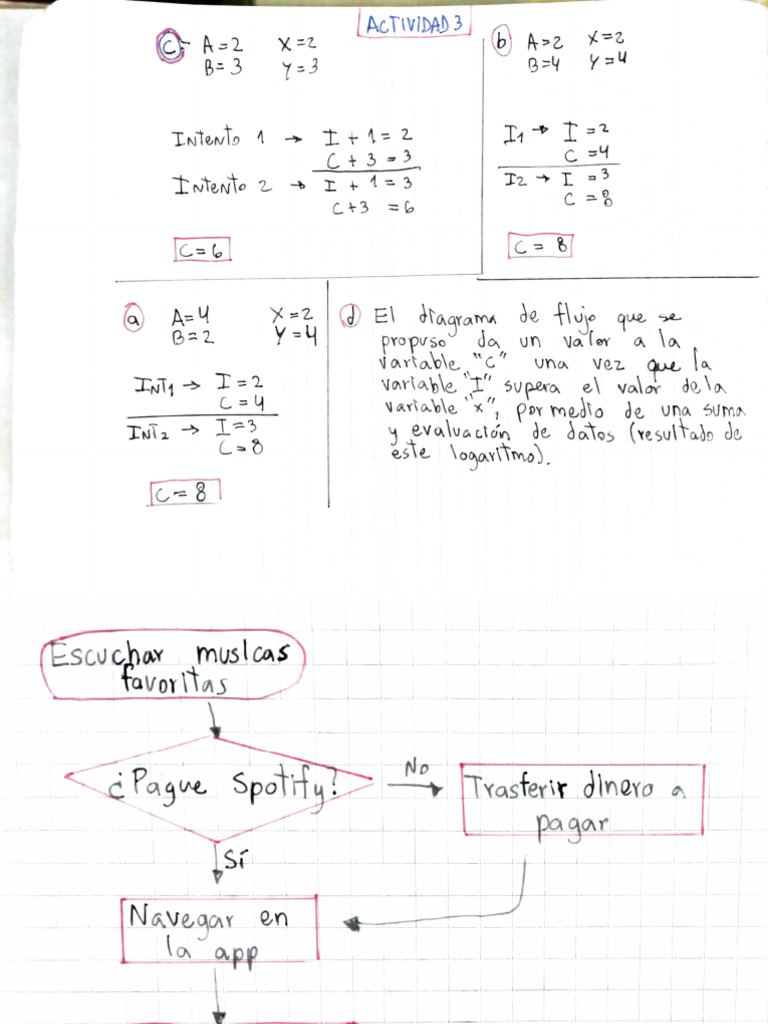 ACTIVIDAD 3
c A=2 X=2
B=3 Y=3
Intento 1 → I + 1 = 2
C + 3 = 3
Intento 2 → I + 1 = 3
C+3 = 6
C=6
b A=2 X=2
B=4 Y=4
I1 → I =2
C =4
I2 → I =3
C =8
C= 8
a A=4 X=2
B=2 Y=4
INT1 → I=2
C=4
INT2 → I=3
C=8
C= 8
d El diagrama de flujo que se
propuso da un valor a la
variable "C" una vez que la
variable "I" supera el valor de la
variable "x", por medio de una suma
y evaluación de datos (resultado de
este logaritmo).
Escuchar musicas
favoritas
¿Pague Spotify?
No
Trasferir dinero a
pagar
Sí
Navegar en
la app